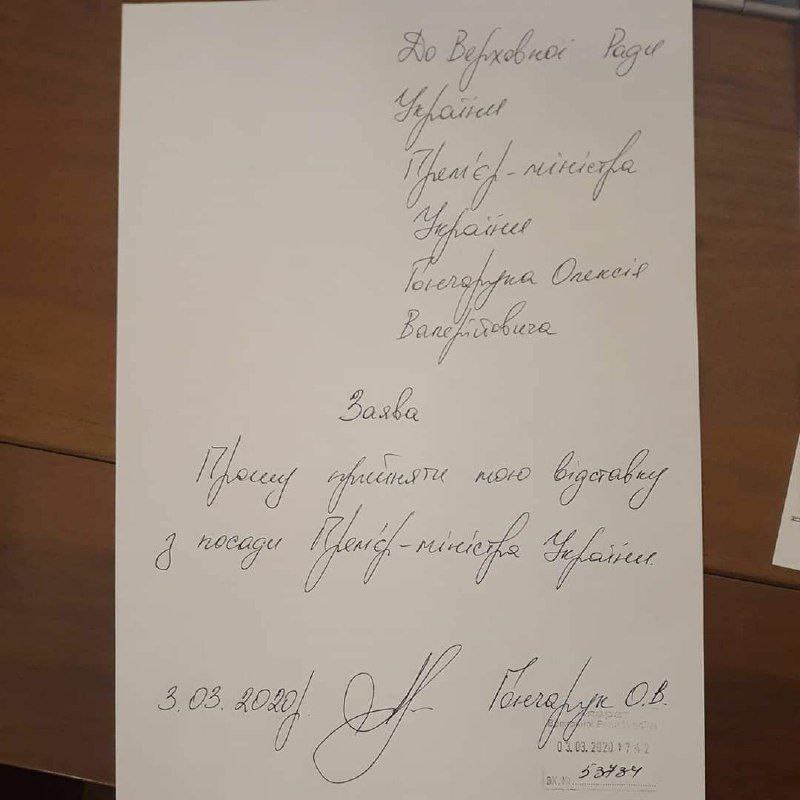 До Верховної Ради
України
Прем'єр-міністра
України
Гончарука Олексія
Валерійовича
Заява
Прошу прийняти мою відставку
з посади Прем'єр-міністра України.
3.03.2020р. Гончарук О.В.
03.03.2020 17 42
ВХ.№ 53734